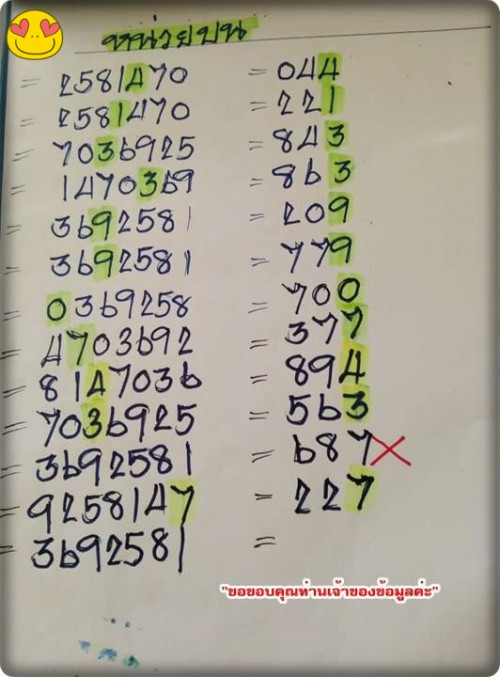 หน่วยบน
= 2581470 = 044
= 2581470 = 221
= 7036925 = 843
= 1470369 = 863
= 3692581 = 209
= 3692581 = 779
= 0369258 = 700
= 4703692 = 377
= 8147036 = 894
= 7036925 = 563
= 3692581 = 687 X
= 9258147 = 227
= 3692581 =
"ขอขอบคุณท่านเจ้าของข้อมูลค่ะ"